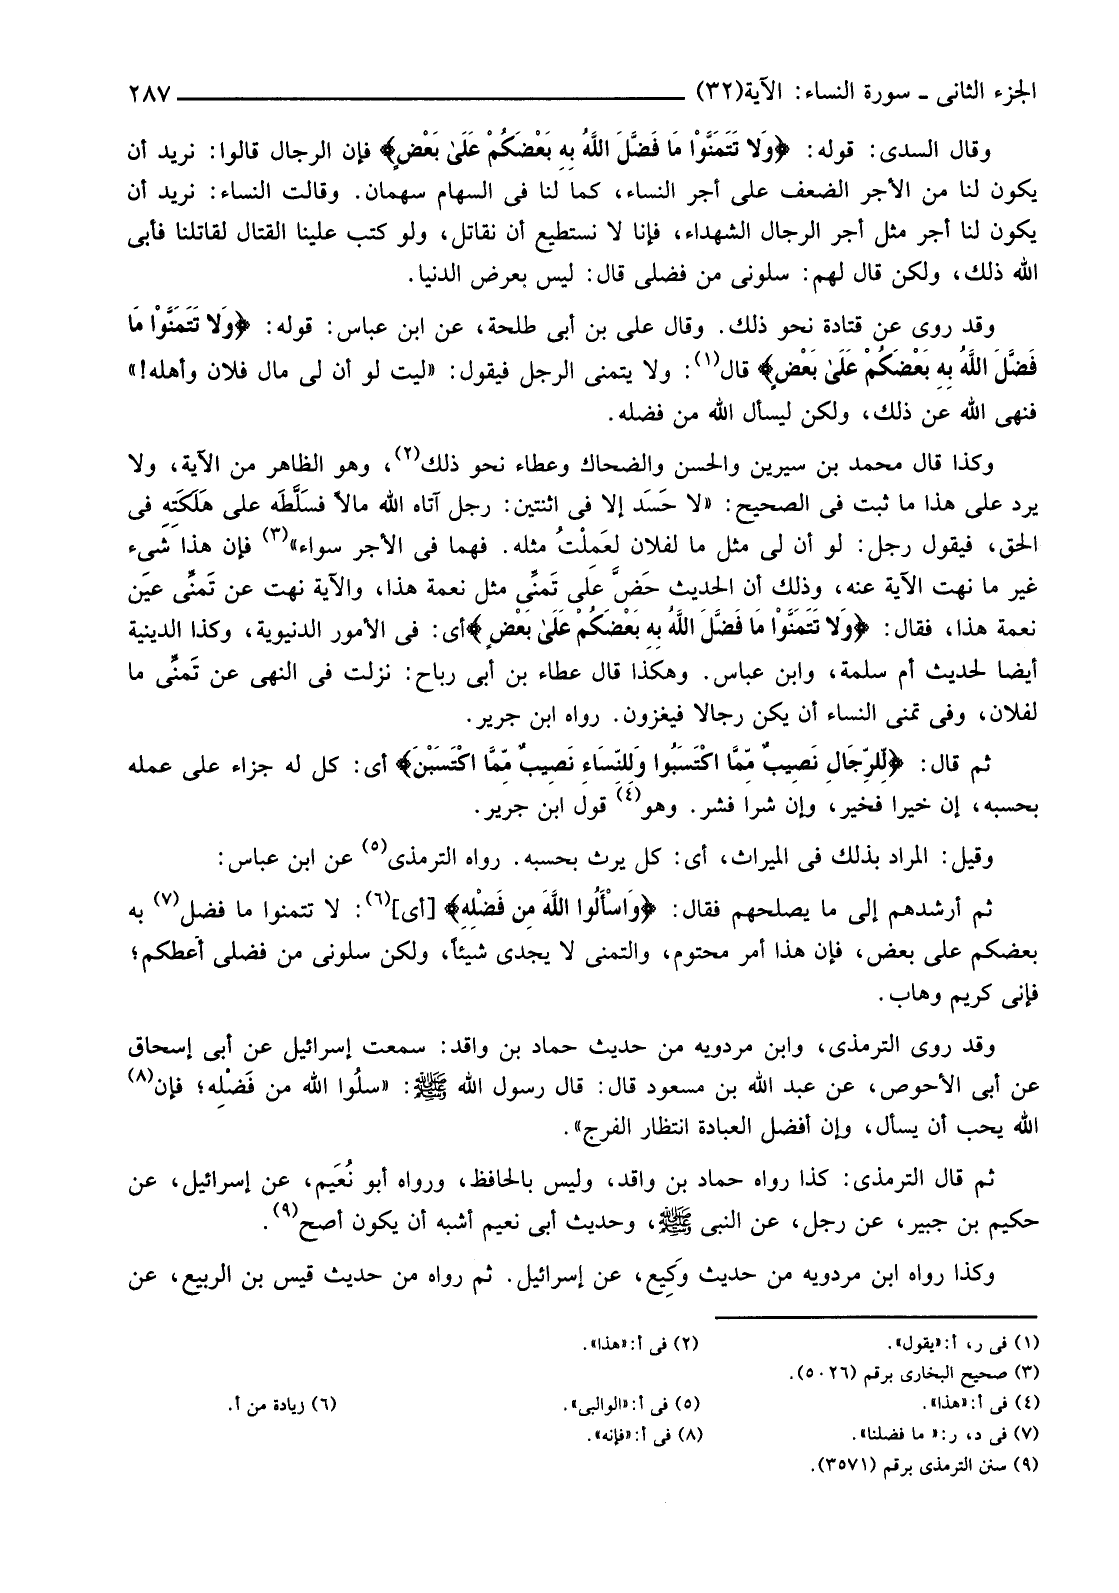 الجزء الثانى ـ سورة النساء: الآية(٣٢) ٢٨٧
وقال السدى: قوله: ﴿وَلا تَتَمَنَّوْا مَا فَضَّلَ اللَّهُ بِهِ بَعْضَكُمْ عَلَىٰ بَعْضٍ﴾ فإن الرجال قالوا: نريد أن
يكون لنا من الأجر الضعف على أجر النساء، كما لنا فى السهام سهمان. وقالت النساء: نريد أن
يكون لنا أجر مثل أجر الرجال الشهداء، فإنا لا نستطيع أن نقاتل، ولو كتب علينا القتال لقاتلنا فأبى
الله ذلك، ولكن قال لهم: سلونى من فضلى قال: ليس بعرض الدنيا.
وقد روى عن قتادة نحو ذلك. وقال على بن أبى طلحة، عن ابن عباس: قوله: ﴿وَلا تَتَمَنَّوْا مَا
فَضَّلَ اللَّهُ بِهِ بَعْضَكُمْ عَلَىٰ بَعْضٍ﴾ قال(١): ولا يتمنى الرجل فيقول: «ليت لو أن لى مال فلان وأهله!»
فنهى الله عن ذلك، ولكن ليسأل الله من فضله.
وكذا قال محمد بن سيرين والحسن والضحاك وعطاء نحو ذلك(٢)، وهو الظاهر من الآية، ولا
يرد على هذا ما ثبت فى الصحيح: «لا حَسَد إلا فى اثنتين: رجل آتاه الله مالاً فسَلَّطَه على هَلَكَتِهِ فى
الحق، فيقول رجل: لو أن لى مثل ما لفلان لعَمِلْتُ مثله. فهما فى الأجر سواء»(٣) فإن هذا شىء
غير ما نهت الآية عنه، وذلك أن الحديث حَضَّ على تَمنِّى مثل نعمة هذا، والآية نهت عن تَمنِّى عين
نعمة هذا، فقال: ﴿وَلا تَتَمَنَّوْا مَا فَضَّلَ اللَّهُ بِهِ بَعْضَكُمْ عَلَىٰ بَعْضٍ﴾أى: فى الأمور الدنيوية، وكذا الدينية
أيضا لحديث أم سلمة، وابن عباس. وهكذا قال عطاء بن أبى رباح: نزلت فى النهى عن تَمنِّى ما
لفلان، وفى تمنى النساء أن يكن رجالا فيغزون. رواه ابن جرير.
ثم قال: ﴿لِّلرِّجَالِ نَصِيبٌ مِّمَّا اكْتَسَبُوا وَلِلنِّسَاءِ نَصِيبٌ مِّمَّا اكْتَسَبْنَ﴾ أى: كل له جزاء على عمله
بحسبه، إن خيرا فخير، وإن شرا فشر. وهو(٤) قول ابن جرير.
وقيل: المراد بذلك فى الميراث، أى: كل يرث بحسبه. رواه الترمذى(٥) عن ابن عباس:
ثم أرشدهم إلى ما يصلحهم فقال: ﴿وَاسْأَلُوا اللَّهَ مِن فَضْلِهِ﴾ [أى](٦): لا تتمنوا ما فضل(٧) به
بعضكم على بعض، فإن هذا أمر محتوم، والتمنى لا يجدى شيئاً، ولكن سلونى من فضلى أعطكم؛
فإنى كريم وهاب.
وقد روى الترمذى، وابن مردويه من حديث حماد بن واقد: سمعت إسرائيل عن أبى إسحاق
عن أبى الأحوص، عن عبد الله بن مسعود قال: قال رسول الله ﷺ: «سلُوا الله من فَضْلِه؛ فإن(٨)
الله يحب أن يسأل، وإن أفضل العبادة انتظار الفرج».
ثم قال الترمذى: كذا رواه حماد بن واقد، وليس بالحافظ، ورواه أبو نُعَيم، عن إسرائيل، عن
حكيم بن جبير، عن رجل، عن النبى ﷺ، وحديث أبى نعيم أشبه أن يكون أصح(٩).
وكذا رواه ابن مردويه من حديث وَكِيع، عن إسرائيل. ثم رواه من حديث قيس بن الربيع، عن
(١) فى ر، أ:«يقول». (٢) فى أ:«هذا».
(٣) صحيح البخارى برقم (٥٠٢٦).
(٤) فى أ:«هذا». (٥) فى أ:«الوالبى». (٦) زيادة من أ.
(٧) فى د، ر:« ما فضلنا». (٨) فى أ:«فإنه».
(٩) سنن الترمذى برقم (٣٥٧١).